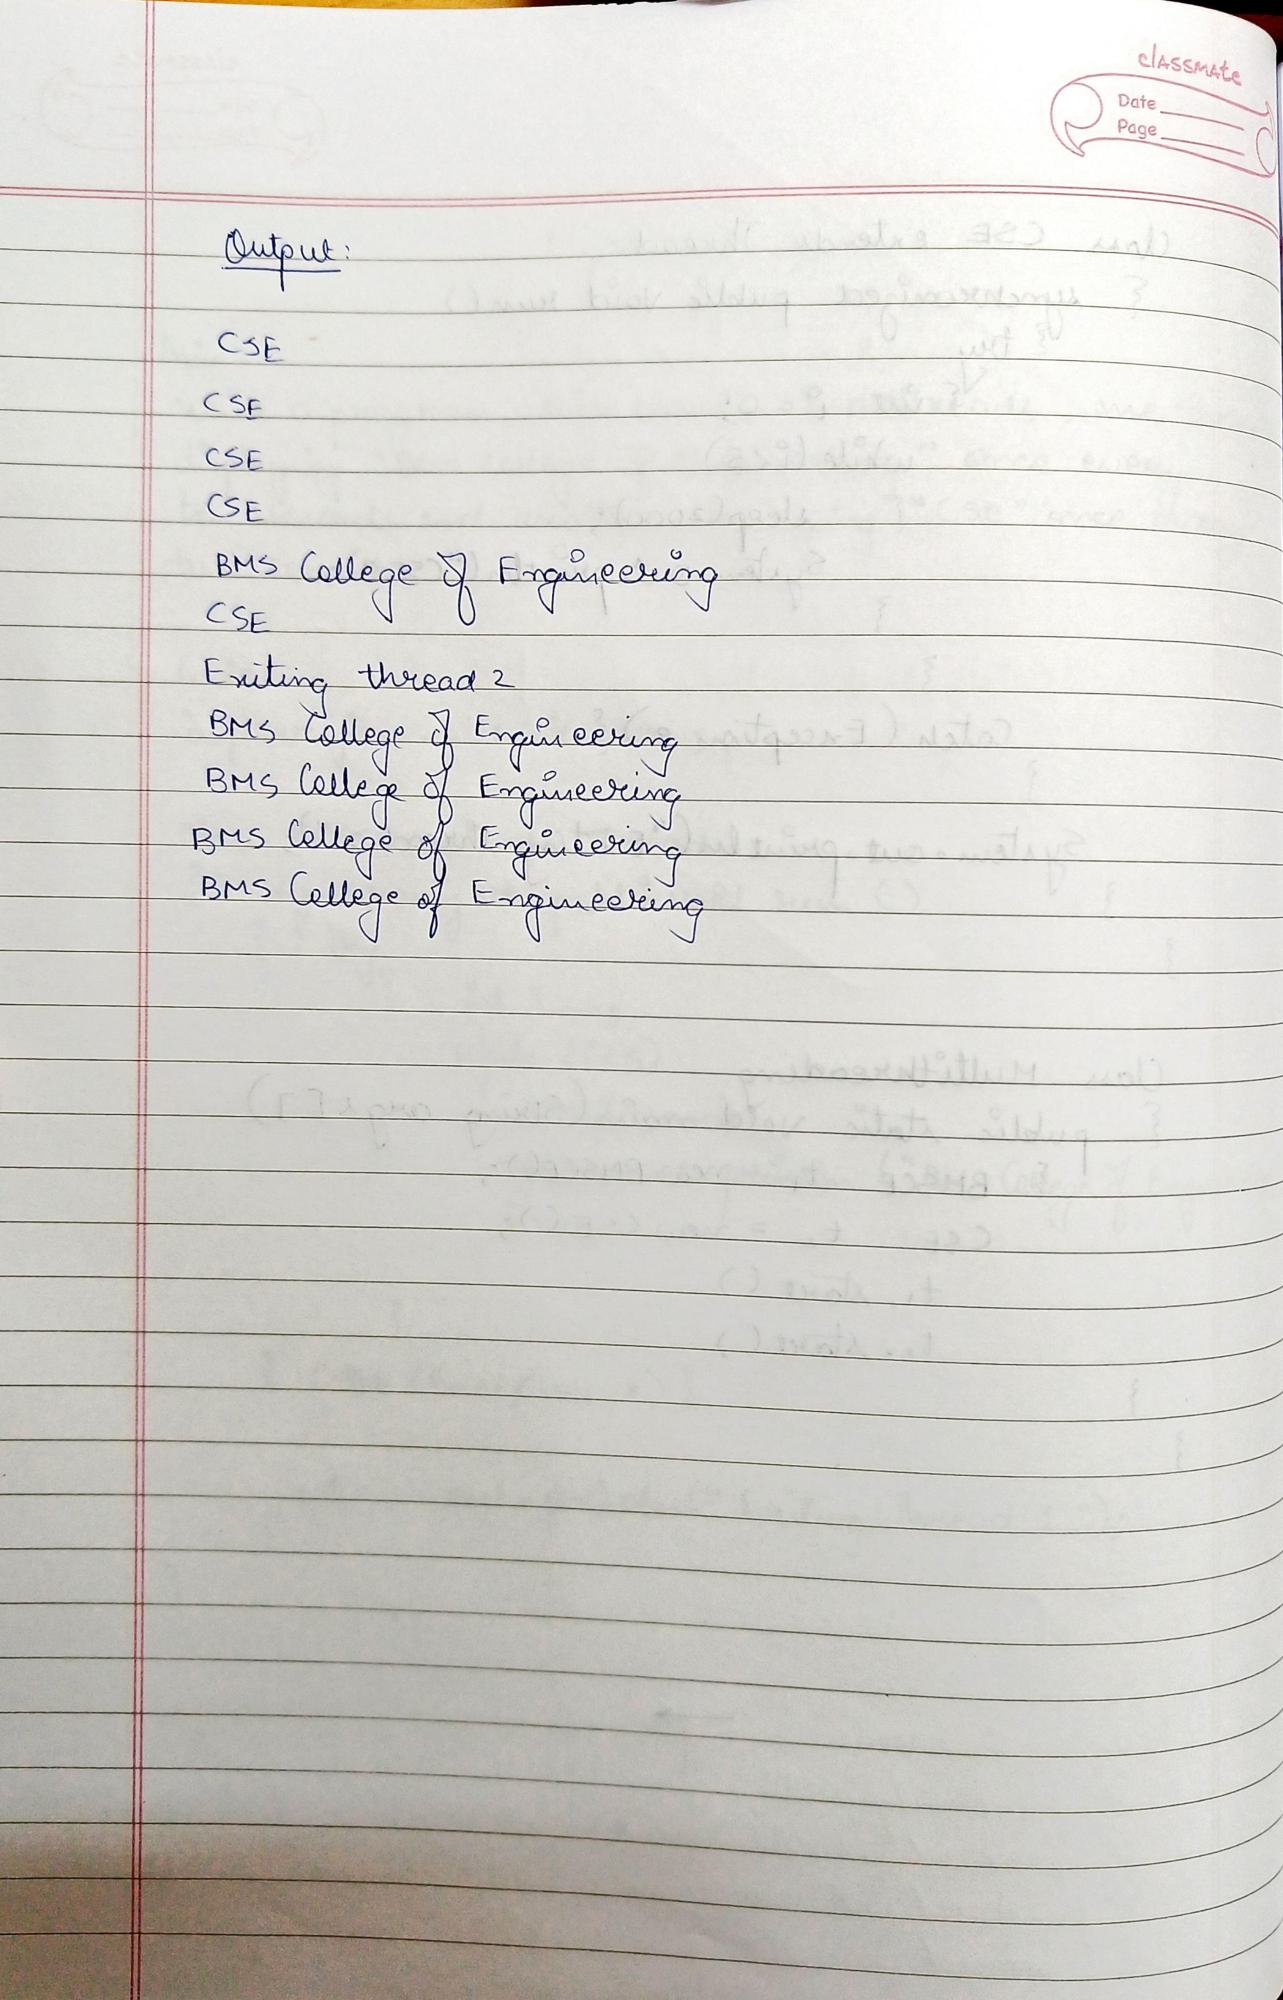 classmate
Date
Page
Output:
CSE
CSE
CSE
CSE
BMS College of Engineering
CSE
Exiting thread 2
BMS College of Engineering
BMS College of Engineering
BMS College of Engineering
BMS College of Engineering